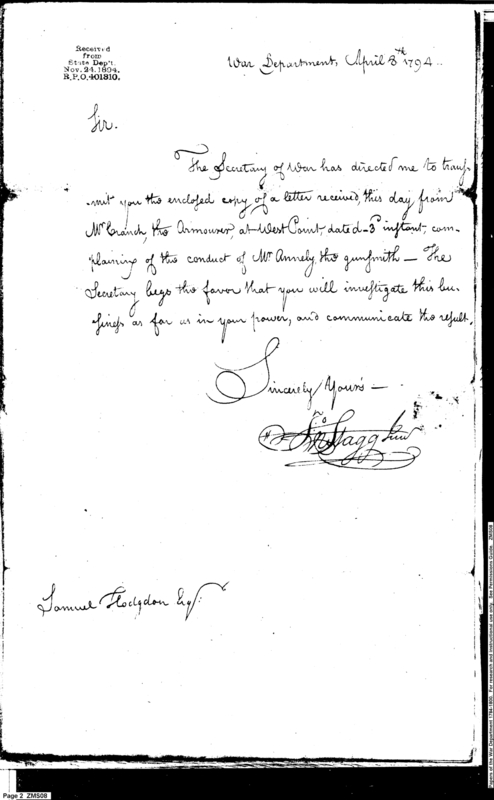 Received
from
State Dep't.
Nov. 24. 1894.
R.P.O. 401310.
War Department, April 8th 1794.
Sir.
The Secretary of War has directed me to trans-
-mit you the enclosed copy of a letter received, this day from
Mr Cranch, the Armourer, at West Point, dated 3d instant, com-
plaining of the conduct of Mr Annely, the gunsmith — The
Secretary begs the favor that you will investigate this bu-
siness as far as in your power, and communicate the result.
Sincerely Yours —
Jno Stagg Junr
Samuel Hodgdon Esqr.
Page 2 ZMS08
Papers of the War Department 1784-1800. For research and instructional use only. See Permissions Guide. ZMS08